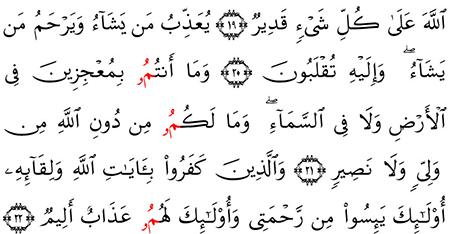 ٱللَّهَ عَلَىٰ كُلِّ شَىْءٍ قَدِيرٌ ١٩ يُعَذِّبُ مَن يَشَآءُ وَيَرْحَمُ مَن
يَشَآءُ ۖ وَإِلَيْهِ تُقْلَبُونَ ٢٠ وَمَآ أَنتُمُۥ بِمُعْجِزِينَ فِى
ٱلْأَرْضِ وَلَا فِى ٱلسَّمَآءِ ۖ وَمَا لَكُمُۥ مِن دُونِ ٱللَّهِ مِن
وَلِىٍّ وَلَا نَصِيرٍ ٢١ وَٱلَّذِينَ كَفَرُواْ بِـَٔايَـٰتِ ٱللَّهِ وَلِقَآئِهِۦٓ
أُوْلَـٰٓئِكَ يَئِسُواْ مِن رَّحْمَتِى وَأُوْلَـٰٓئِكَ لَهُمُۥ عَذَابٌ أَلِيمٌ ٢٢